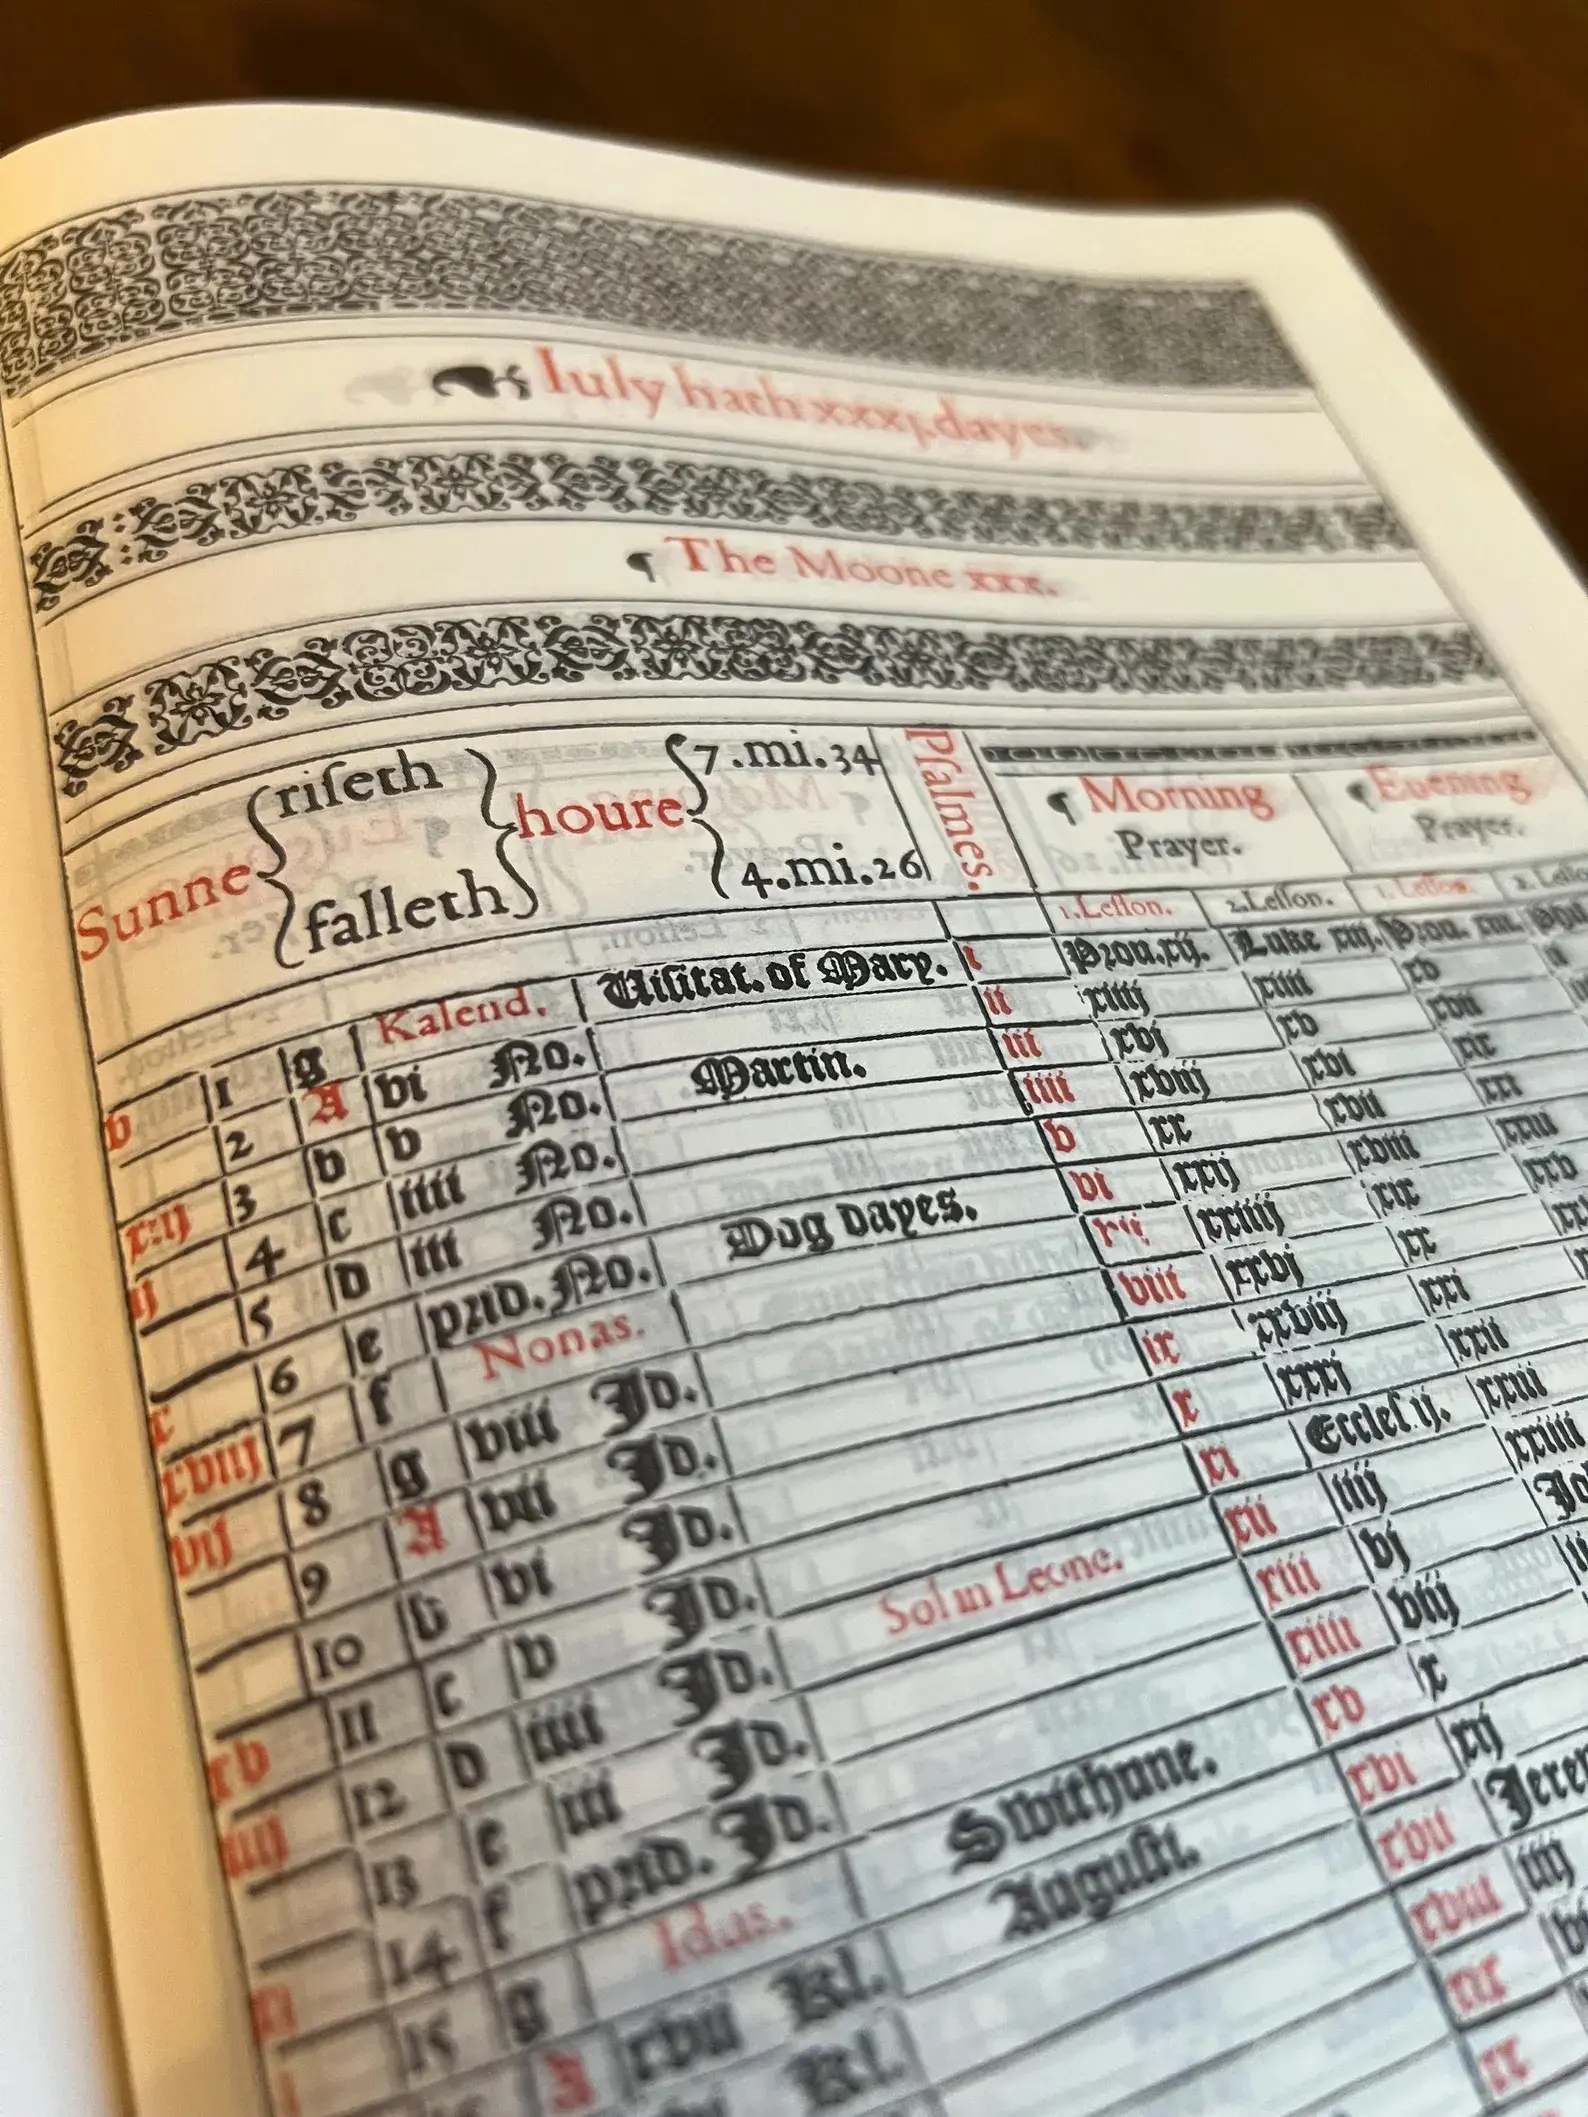 Iuly hath xxxj. dayes.
¶ The Moone xxx.
Sunne { riſeth } houre { 7.mi.34
falleth 4.mi.26
Pſalmes.
¶ Morning Prayer.
¶ Euening Prayer.
1.Leſſon. 2.Leſſon. 1.Leſſon. 2.Leſſo
1 g Kalend. Uiſitat. of Mary. i Prou.xij. Luke xiij. Prou. xiii. Phil
b 2 A vi No. ii xiiij xiiii xv
3 b v No. Martin. iii xvj xv xvii
4 c iiii No. iiii xviij xvi xix
ij 5 d iii No. v xx xvii xxi
6 e prid. No. vi xxij xviii xxiii
x 7 f Nonas. Dog dayes. vii xxiiij xix xxv
xviij 8 g viii Id. viii xxvj xx
vij 9 A vii Id. ix xxviij xxi
10 b vi Id. x xxxj xxii
11 c v Id. xi Eccleſ.ij. xxiii
xv 12 d iiii Id. xii iiij xxiiii
iiij 13 e iii Id. Sol in Leone. xiii vj
14 f prid. Id. xiiii viij
15 g Idus. Swithune. xv x
A xvii Kl. Auguſti. xvi xij
Kl. xvii Jere
xviii iiij
xix
xx